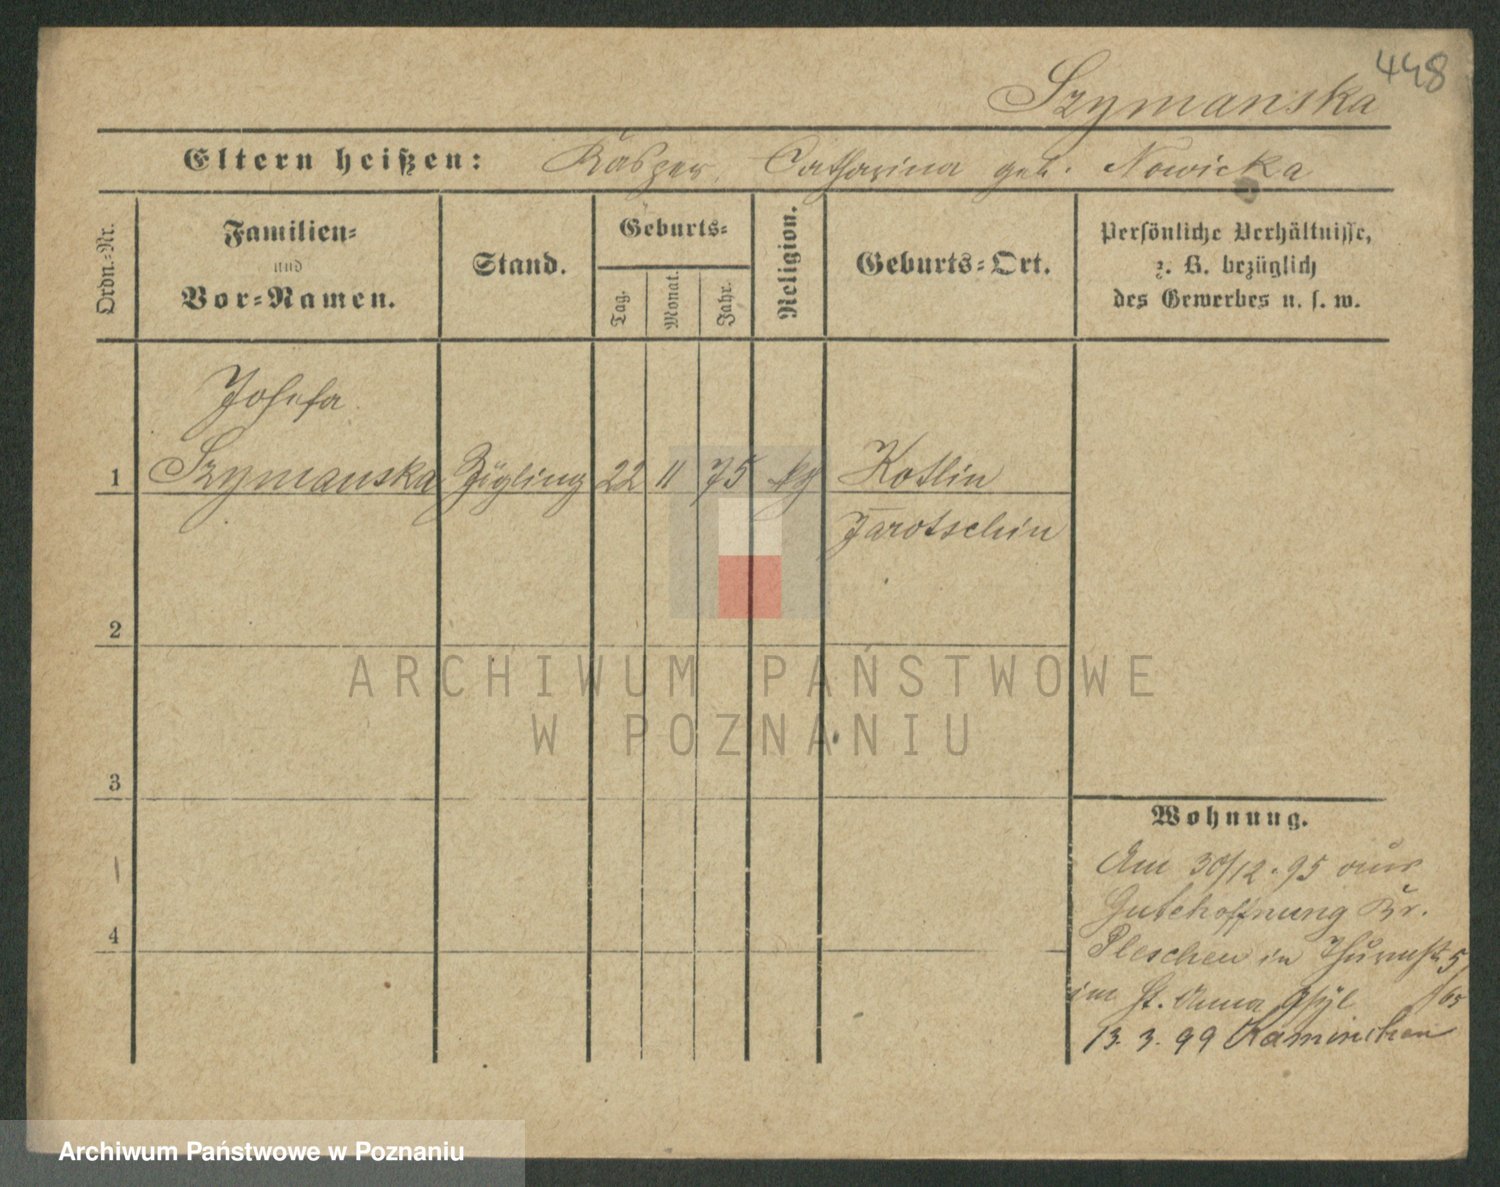 448
Szymanska
Eltern heißen: Kasper, Catharina geb. Nowicka
Ordn.-Nr.
Familien-
und
Vor-Namen.
Stand.
Geburts-
Tag.
Monat.
Jahr.
Religion.
Geburts-Ort.
Persönliche Verhältnisse,
z. B. bezüglich
des Gewerbes u. s. w.
Josefa
1 Szymanska Zögling 22 11 75 kg Kotlin
Jarotschin
2
3
4
ARCHIWUM PAŃSTWOWE
W POZNANIU
Wohnung.
Am 30/12.95 aus
Gutehoffnung Kr.
Pleschen in Thurmstr. 5
im St. Anna Asyl
13. 3. 99 Kaminchen
Archiwum Państwowe w Poznaniu